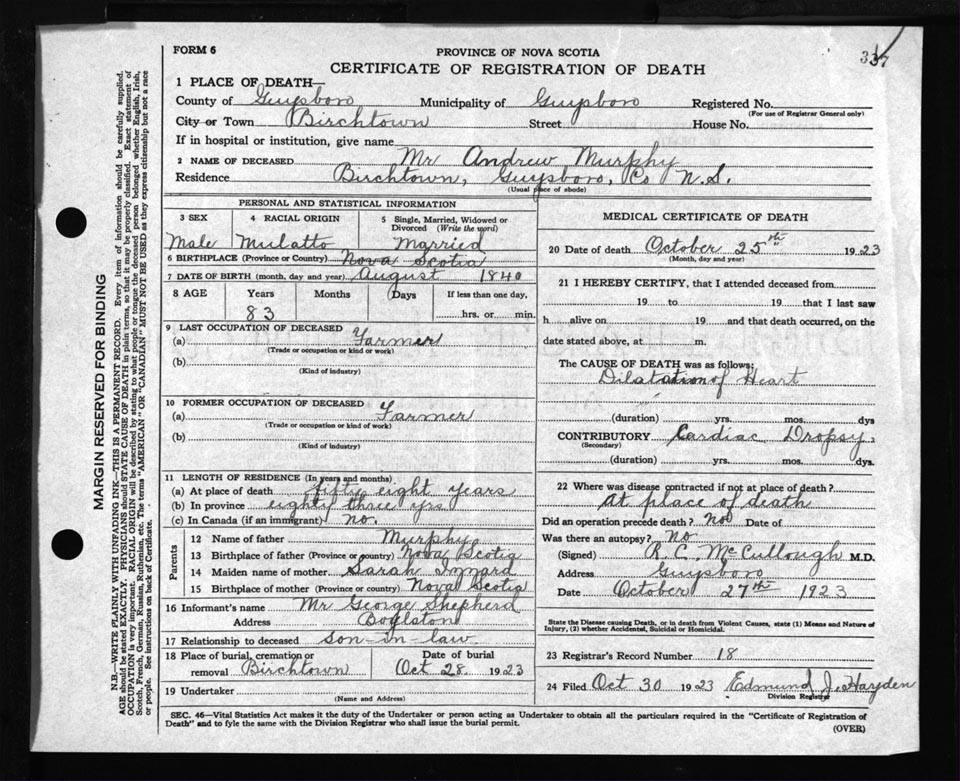 337
FORM 6
PROVINCE OF NOVA SCOTIA
CERTIFICATE OF REGISTRATION OF DEATH
1 PLACE OF DEATH—
County of Guysboro Municipality of Guysboro Registered No.
(For use of Registrar General only)
City or Town Birchtown Street House No.
If in hospital or institution, give name
2 NAME OF DECEASED Mr Andrew Murphy
Residence Birchtown, Guysboro, Co N.S.
(Usual place of abode)
PERSONAL AND STATISTICAL INFORMATION
3 SEX 4 RACIAL ORIGIN 5 Single, Married, Widowed or Divorced (Write the word)
Male Mulatto Married
6 BIRTHPLACE (Province or Country) Nova Scotia
7 DATE OF BIRTH (month, day and year) August 1840
8 AGE Years Months Days If less than one day,
83 hrs. or min.
9 LAST OCCUPATION OF DECEASED
(a) Farmer
(Trade or occupation or kind or work)
(b)
(Kind of industry)
10 FORMER OCCUPATION OF DECEASED
(a) Farmer
(Trade or occupation or kind of work)
(b)
(Kind of industry)
11 LENGTH OF RESIDENCE (In years and months)
(a) At place of death fifty eight years
(b) In province eighty three yrs
(c) In Canada (if an immigrant) no.
Parents
12 Name of father Murphy
13 Birthplace of father (Province or country) Nova Scotia
14 Maiden name of mother Sarah
15 Birthplace of mother (Province or country) Nova Scotia
16 Informant's name Mr George Shepherd
Address Boylston
17 Relationship to deceased son-in-law
18 Place of burial, cremation or removal Birchtown Date of burial Oct 28. 1923
19 Undertaker
(Name and Address)
MEDICAL CERTIFICATE OF DEATH
20 Date of death October 25th 1923
(Month, day and year)
21 I HEREBY CERTIFY, that I attended deceased from
19 to 19 that I last saw
h alive on 19 and that death occurred, on the
date stated above, at m.
The CAUSE OF DEATH was as follows:
Dilatation of Heart
(duration) yrs. mos. dys
CONTRIBUTORY Cardiac Dropsy.
(Secondary)
(duration) yrs. mos. dys.
22 Where was disease contracted if not at place of death?
At place of death
Did an operation precede death? No Date of
Was there an autopsy? no
(Signed) R. C. McCullough M.D.
Address Guysboro
Date October 27th 1923
State the Disease causing Death, or in death from Violent Causes, state (1) Means and Nature of
Injury, (2) whether Accidental, Suicidal or Homicidal.
23 Registrar's Record Number 18
24 Filed Oct 30 1923 Edmund J. Hayden
Division Registrar
SEC. 46—Vital Statistics Act makes it the duty of the Undertaker or person acting as Undertaker to obtain all the particulars required in the "Certificate of Registration of
Death" and to fyle the same with the Division Registrar who shall issue the burial permit.
(OVER)
MARGIN RESERVED FOR BINDING
N.B.—WRITE PLAINLY WITH UNFADING INK—THIS IS A PERMANENT RECORD. Every item of information should be carefully supplied.
AGE should be stated EXACTLY. PHYSICIANS should STATE CAUSE OF DEATH in plain terms, so that it may be properly classified. Exact statement of
OCCUPATION is very important. RACIAL ORIGIN will be described by stating to what people or tongue the deceased person belonged whether English, Irish,
Scotch, French, German, Russian, Ruthenian, etc. The terms "AMERICAN" OR "CANADIAN" MUST NOT BE USED as they express citizenship but not a race
or people. See instructions on back of Certificate.